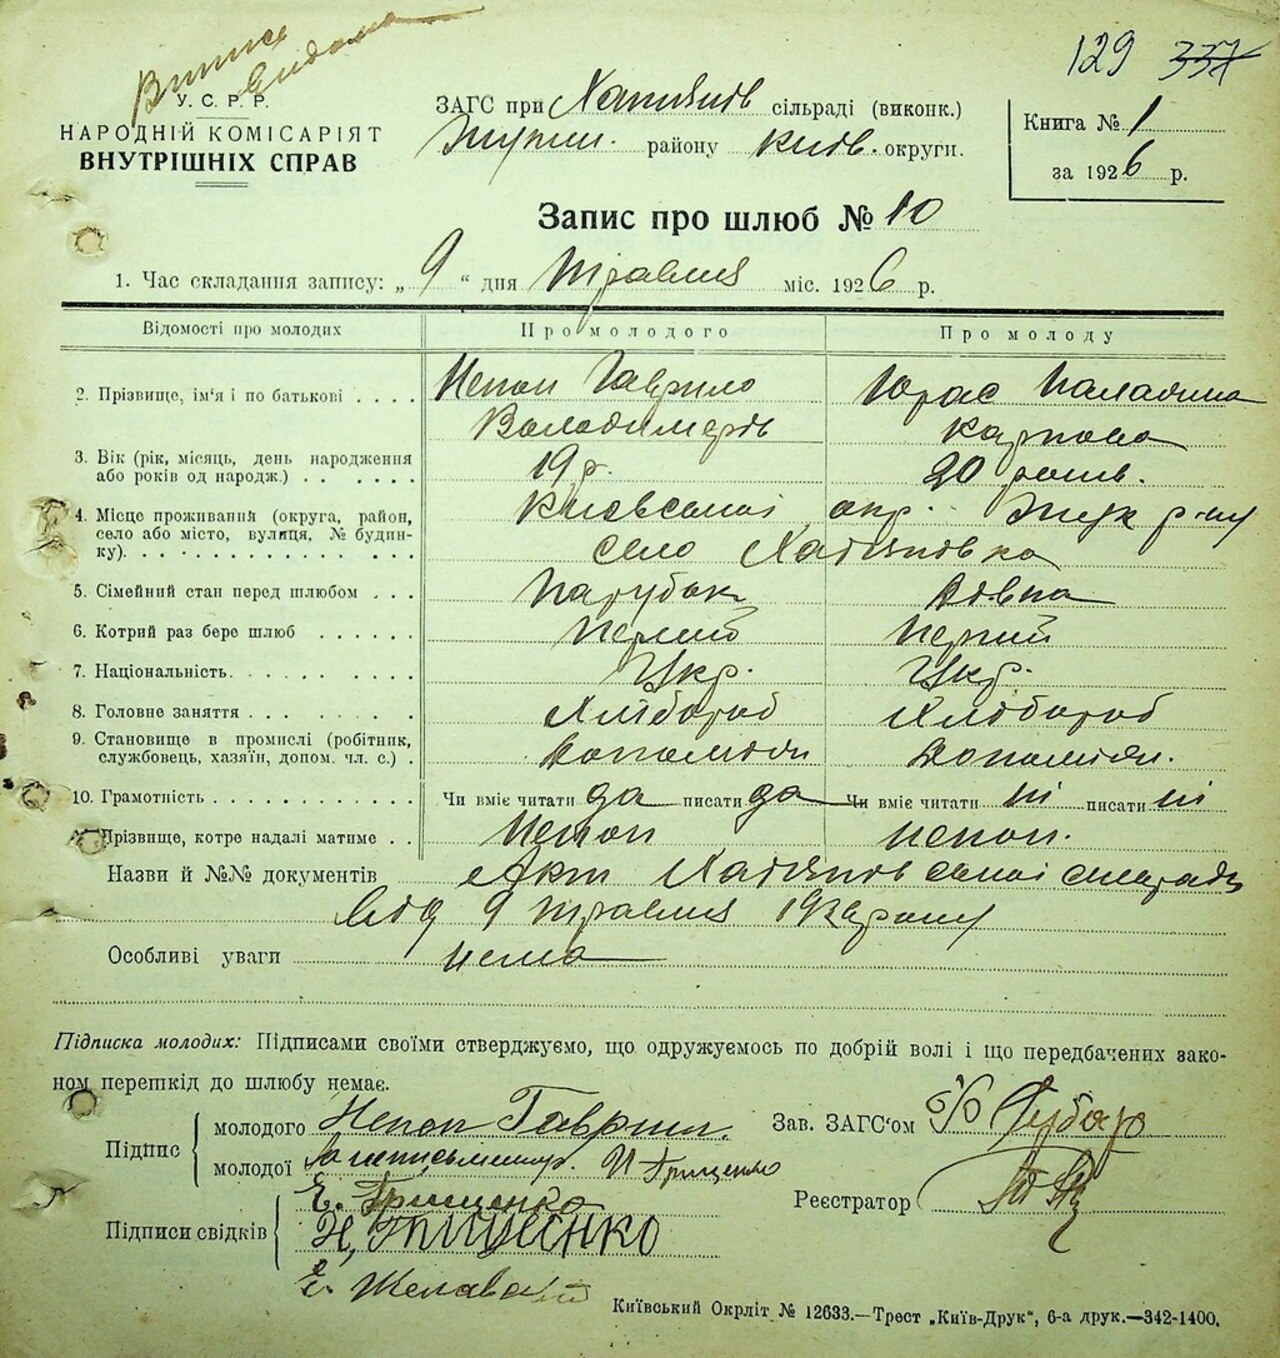 Виписа видана
129 337
У. С. Р. Р.
НАРОДНІЙ КОМІСАРІЯТ
ВНУТРІШНІХ СПРАВ
ЗАГС при сільраді (виконк.)
району Київ. округи.
Книга № 1
за 1926 р.
Запис про шлюб № 10
1. Час складання запису: „ 9 “ дня Травня міс. 1926 р.
Відомості про молодих Про молодого Про молоду
2. Прізвище, ім'я і по батькові . . . . Непоп Гаврило Юрас Палажка
Володимерів Карпова
3. Вік (рік, місяць, день народження 19 р. 20 років.
або років од народж.) . . . . . . .
4. Місце проживаннй (округа, район, Київської окр. р-ну
село або місто, вулиця, № будин- село Хотянівка
ку). . . . . . . . . . . . . .
5. Сімейний стан перед шлюбом . . . Парубок Дівка
6. Котрий раз бере шлюб . . . . . . Перший Перший
7. Національність. . . . . . . . . . Укр. Укр.
8. Головне заняття . . . . . . . . Хлібороб Хлібороб
9. Становище в промислі (робітник,
службовець, хазяїн, допом. чл. с.) .
10. Грамотність . . . . . . . . . . . . Чи вміє читати да писати да Чи вміє читати ні писати ні
Прізвище, котре надалі матиме . . Непоп Непоп.
Назви й №№ документів Акт Хотянівської сільради
від 9 травня 1926 року
Особливі уваги нема
Підписка молодих: Підписами своїми стверджуємо, що одружуємось по добрій волі і що передбачених зако-
ном перешкід до шлюбу немає.
Підпис молодого Непоп Гаврил. Зав. ЗАГС'ом
молодої За неписьменну. И Грищенко
Е. Грищенко Реєстратор
Підписи свідків Н, Грищенко
Київський Окрліт № 12633.—Трест „Київ-Друк“, 6-а друк.—342-1400.